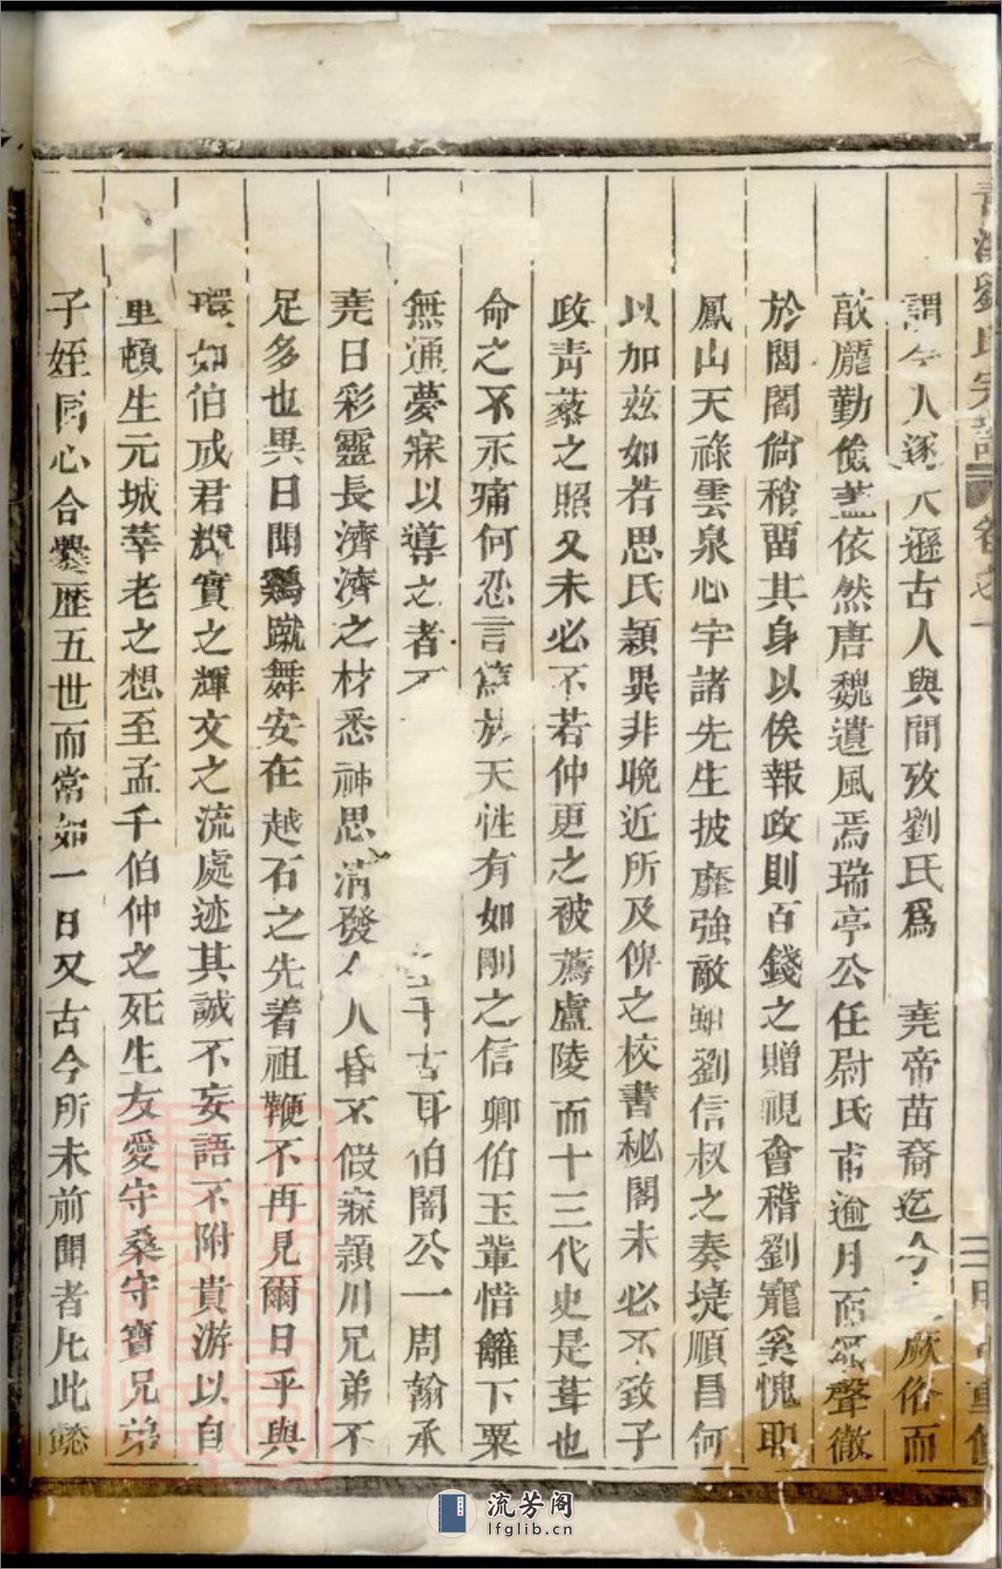 劉氏宗譜 卷之一 重修
謂今人逐大遜古人與間攷劉氏爲 堯帝苗裔迄今厥俗而
敵龐勤儉蓋依然唐魏遺風焉瑞亭公任尉氏甫逾月而頌聲徹
於閭閻倘稍畱其身以俟報政則百錢之贈視會稽劉寵奚愧耶
鳳山天祿雲泉心宇諸先生披靡強敵卽劉信叔之奏堤順昌何
以加茲如若思氏穎異非晚近所及俾之校書秘閣未必不致子
政靑藜之照又未必不若仲更之被薦盧陵而十三代史是葺也
命之不永痛何忍言篤於天性有如剛之信卿伯玉輩惜籬下粟
無通夢寐以導之者不 千古耳伯闇公一周翰承
堯日彩靈長濟濟之材悉神思淸發人人昏不假寐穎川兄弟不
足多也異日聞鷄蹴舞安在越石之先着祖鞭不再見爾日乎與
環如伯成君燦實之輝文之流處迹其誠不妄語不附貴游以自
重頓生元城莘老之想至孟千伯仲之死生友愛守桑守寶兄弟
子姪同心合爨歷五世而常如一日又古今所未前聞者凡此懿
流芳阁
lfglib.cn